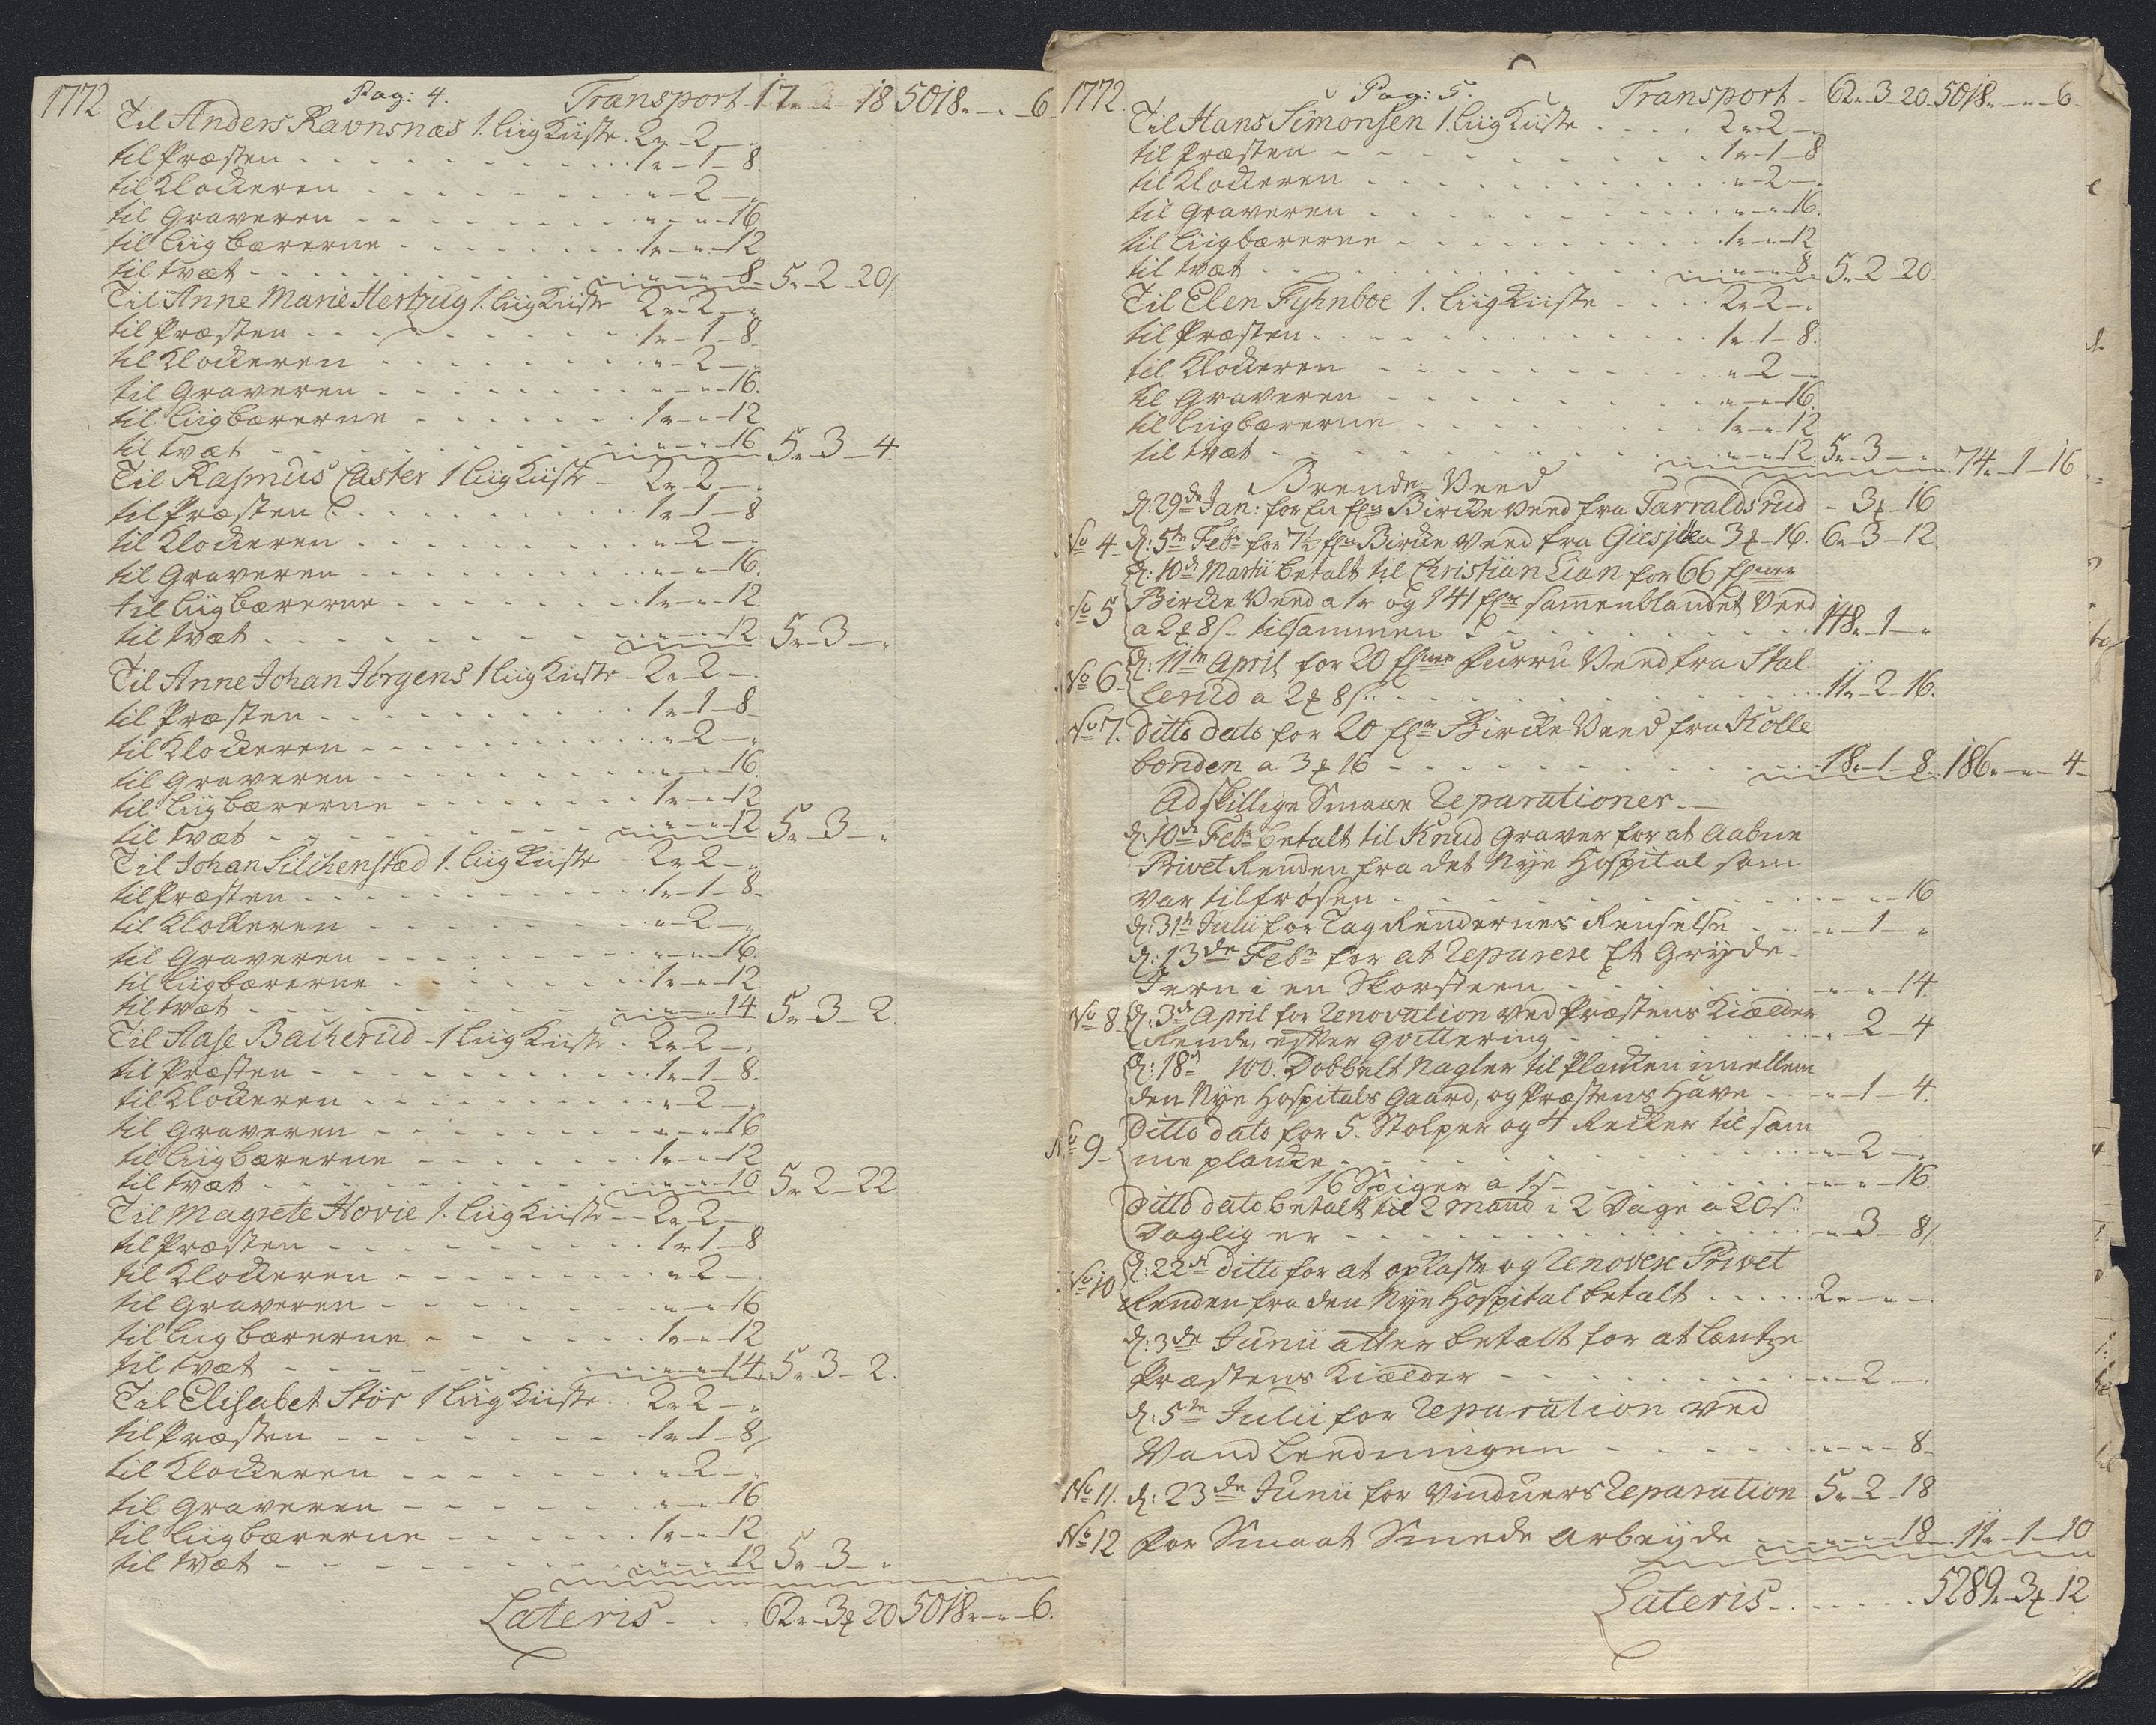 1772 Pag: 4. Transport 17. 2 18 5018. " 6
Til Anders Ravnsnæs 1. Liig Kiiste . 2. 2 "
til Præsten 1. 1 8
til Klockeren " 2 "
til Graveren " " 16
til Liigbærerne 1. " 12
til tvæt " " 8 5. 2 20/
Til Anne Marie Hertzug 1. Liig Kiiste 2. 2 "
til Præsten 1. 1 8
til Klockeren " 2 "
til Graveren " " 16.
til Liigbærerne 1. " 12
til tvæt " " 16 5. 3 4
Til Rasmus Caster 1 Liig Kiiste 2. 2 "
til Præsten 1. 1 8
til Klockeren " 2 "
til Graveren " " 16.
til Liigbærerne 1. " 12
til tvæt " " 12 5. 3 "
Til Anne Johan Jørgens 1 Liig Kiiste 2. 2 "
til Præsten 1. 1 8
til Klockeren " 2 "
til Graveren " " 16.
til Liigbærerne 1. " 12
til tvæt " " 12 5. 3 "
Til Johan Silchenstæd 1. Liig Kiiste 2. 2 "
til Præsten 1. 1 8
til Klockeren " 2 "
til Graveren " " 16.
til Liigbærerne 1. " 12
til tvæt " " 14 5. 3 2
Til Aase Bacherud 1 Liig Kiiste 2. 2 "
til Præsten 1. 1 8
til Klockeren " 2 "
til Graveren " " 16
til Liigbærerne 1. " 12
til tvæt " " 10 5. 2 22
Til Magrete Hovie 1. Liig Kiiste 2. 2 "
til Præsten 1. 1 8
til Klockeren " 2 "
til Graveren " " 16
til Liigbærerne 1. " 12
til tvæt " " 14 5. 3 2.
Til Elisabet Stör 1 Liig Kiiste 2. 2 "
til Præsten 1. 1 8
til Klockeren " 2 "
til Graveren " " 16
til Liigbærerne 1. " 12
til tvæt " " 12 5. 3 "
Lateris 62. 3 20 5018. " 6.
1772. Pag: 5. Transport 62. 3 20 5018. " 6
Til Hans Simonsen 1. Liig Kiiste 2. 2 "
til Præsten 1. 1 8
til Klockeren " 2 "
til Graveren " " 16.
til Liigbærerne 1. " 12
til tvæt " " 8 5. 2 20.
Til Elen Fyhnboe 1. Liig Kiiste 2. 2 "
til Præsten 1. 1 8.
til Klockeren " 2 "
til Graveren " " 16
til Liigbærerne 1. " 12
til tvæt " " 12 5. 3 " 74. 1 16
Brende Veed
d: 29de Jan: for En Birke Veed fra Tarraldsrud 3 16
No 4 d: 5te Febr for 7½ Birke Veed fra Giesjøe a 3 16. 6. 3 12
d: 10de Martii betalt til Christian Lian for 66
No 5 Birke Veed a 1 og 141 samenblandet Veed
a 2 8 tilsammen 148. 1 "
d: 11te April for 20 furru Veed fra Stal
No 6 lerud a 2 8 11. 2 16.
No 7. ditto dato for 20 Birke Veed fra Kolle
bonden a 3 16 18. 1 8 186. " 4
Adskillige Smaae Reparationer.
d: 10de Febr betalt til Knud Graver for at aabne
Privet Renden fra det Nye Hospital som
var tilfrosen " " 16
d: 31te Julii for Tag Rendernes Renselse " 1 "
d: 13de Febr for at Reparere Et Gryde
Jern i en Skorsteen " " 14
No 8 d: 3de April for Renovation ved Præstens Kielder
Rende, efter qvittering " 2 4
d: 18de 100. Dobbelt Nagler til Plancken imellem
den Nye Hospitals Gaard, og Præstens Have " 1 4.
No 9 Ditto dato for 5. Stolper og 4 Recker til sam
me plancke " 2 "
16 Spiger a 1 " " 16.
Ditto dato betalt til 2 Mand i 2 Dage a 20
Daglig er " 3 8/
No 10 d: 22de ditto for at opkaste og Renovere Privet
Renden fra den Nye Hospital betalt 2. " "
d: 3de Junii atter betalt for at læntze
Præstens Kielder " 2 "
d: 5te Julii for Reparation ved
Vand Leedningen " " 8
No 11. d: 23de Junii for Vinduers Reparation 5. 2 18
No 12 for Smaat Smede arbeyde " " 18 11. 1 10
Lateris 5289. 3 12